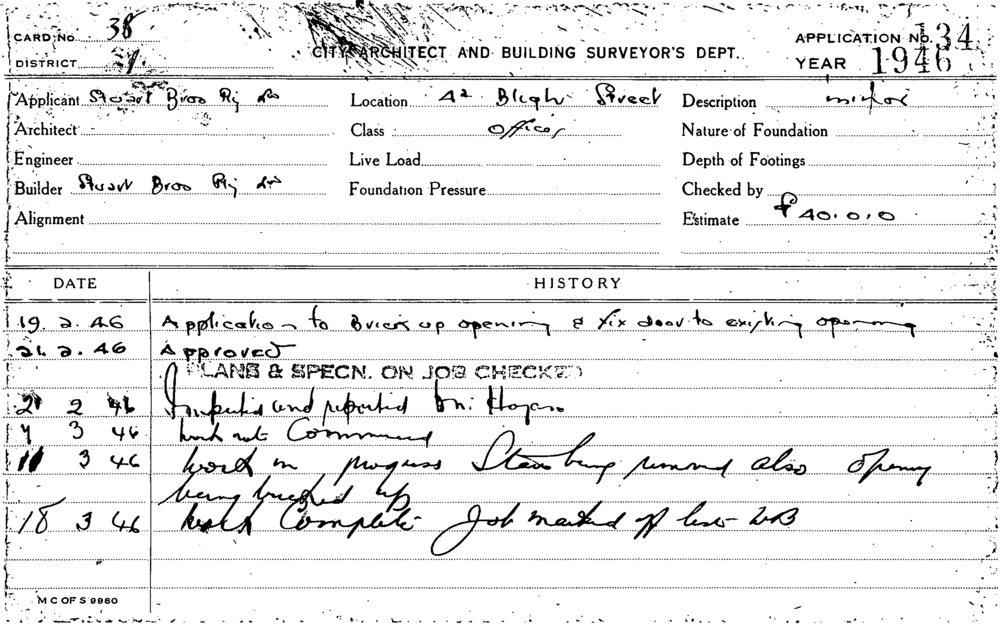 CARD No. 38
CITY ARCHITECT AND BUILDING SURVEYOR'S DEPT.
APPLICATION No. 134
DISTRICT
YEAR 1946
Applicant Stuart Bros Pty Ltd
Location 42 Bligh Street
Description minor
Architect
Class offices
Nature of Foundation
Engineer
Live Load
Depth of Footings
Builder Stuart Bros Pty Ltd
Foundation Pressure
Checked by
Alignment
Estimate £ 40.0.0
DATE HISTORY
19. 2. 46 Application to Brick up opening & fix door to existing opening
21. 2. 46 Approved
PLANS & SPECN. ON JOB CHECKED
21 2 46 Inspected and reported Mr. Hogan
7 3 46 Work not Commenced
11 3 46 Work in progress Stairs being removed also opening
being bricked up
18 3 46 Work Complete Job marked off
M C OF S 9860